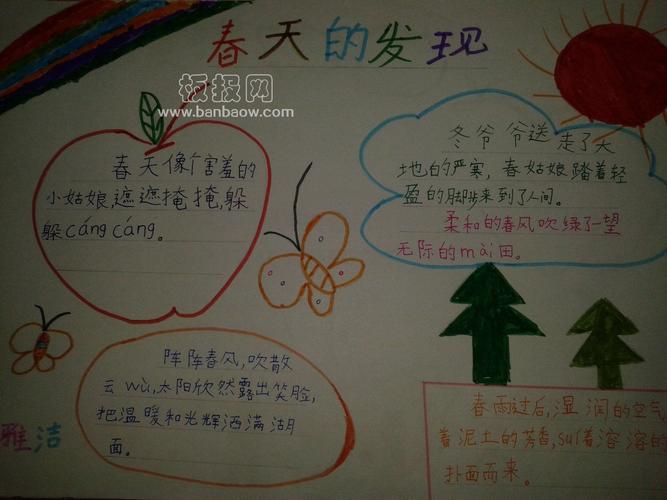 春天的发现
板报网
www.banbaow.com
春天像个害羞的
小姑娘,遮遮掩掩,躲
躲cáng cáng。
冬爷爷送走了大
地的严寒,春姑娘踏着轻
盈的脚步来到了人间。
柔和的春风吹绿了一望
无际的mài田。
阵阵春风,吹散
云wù,太阳欣然露出笑脸,
把温暖和光辉洒满湖
面。
雅洁
春雨过后,湿润的空气
着泥土的芳香,suí着溶溶的
扑面而来。